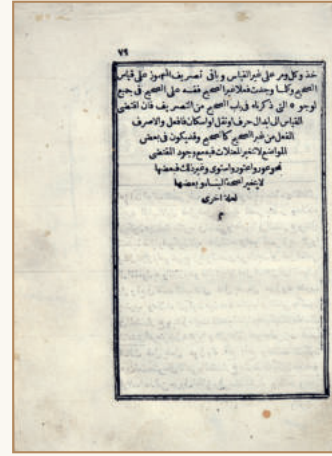 ٧٩
خذ وكل ومر على غير القياس وباقى تصريف المهموز على قياس
الصحيح وكلما وجدت فعلا غير الصحيح فقسه على الصحيح فى جميع
لوجوه التى ذكرناه فى باب الصحيح من التصريف فان اقتضى
القياس الى ابدال حرف او نقل او اسكان فافعل والا صرف
الفعل من غير الصحيح كالصحيح وقد يكون فى بعض
المواضع لا تتغير المعتلات فيه مع وجود المقتضى
نحو عور واعتور واستوى وغير ذلك فبعضها
لا يتغير لصحة البناء وبعضها
لعلة اخرى
م